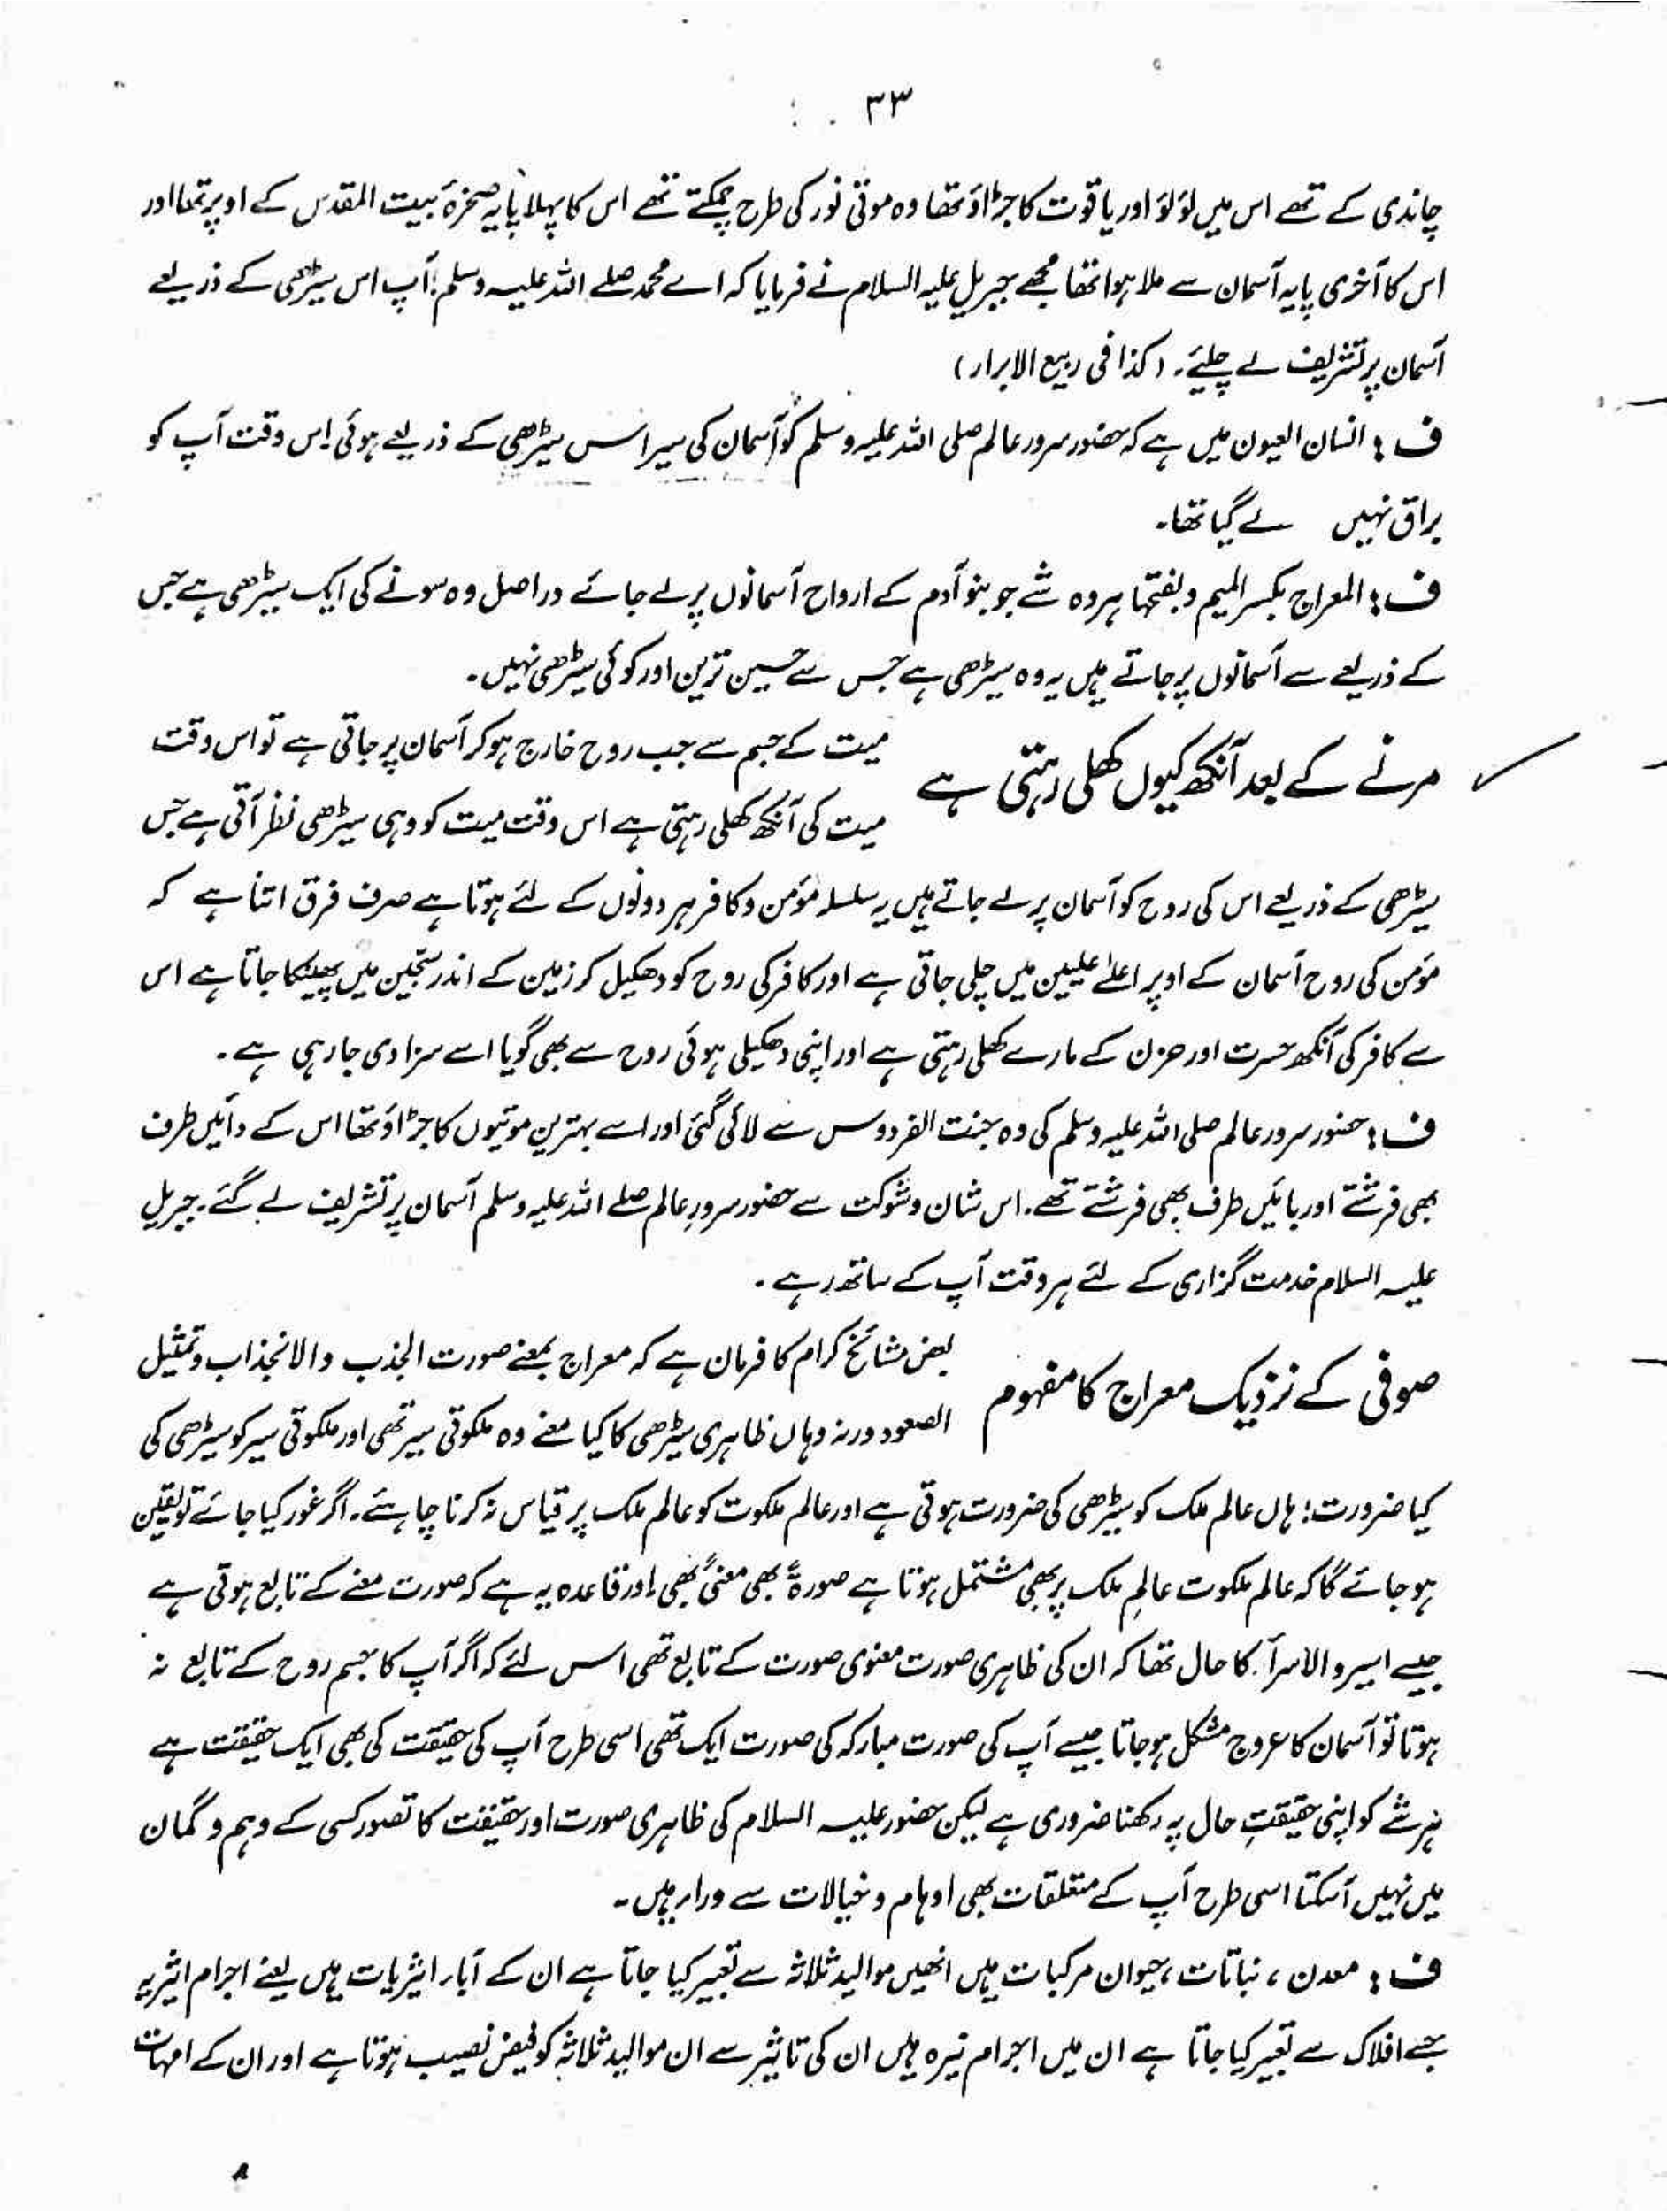 ۳۳
چاندی کے تھے اس میں لؤلؤ اور یاقوت کا جڑاؤ تھا وہ موتی نور کی طرح چمکتے تھے اس کا پہلا پایہ صخرۂ بیت المقدس کے اوپر تھا اور
اس کا آخری پایہ آسمان سے ملا ہوا تھا مجھے جبریل علیہ السلام نے فرمایا کہ اے محمد صلے اللہ علیہ وسلم! آپ اس سیڑھی کے ذریعے
آسمان پر تشریف لے چلیئے۔ (کذا فی ربیع الابرار)
ف : انسان العیون میں ہے کہ حضور سرور عالم صلی اللہ علیہ وسلم کو آسمان کی سیر اس سیڑھی کے ذریعے ہوئی۔ اس وقت آپ کو
براق نہیں لے گیا تھا۔
ف : المعراج بکسر المیم و بفتحہا ہر وہ شے جو بنو آدم کے ارواح آسمانوں پر لے جائے دراصل وہ سونے کی ایک سیڑھی ہے جس
کے ذریعے سے آسمانوں پر جاتے ہیں یہ وہ سیڑھی ہے جس سے حسین ترین اور کوئی سیڑھی نہیں۔
مرنے کے بعد آنکھ کیوں کھلی رہتی ہے میت کے جسم سے جب روح خارج ہو کر آسمان پر جاتی ہے تو اس وقت
میت کی آنکھ کھلی رہتی ہے اس وقت میت کو وہی سیڑھی نظر آتی ہے جس
سیڑھی کے ذریعے اس کی روح کو آسمان پر لے جاتے ہیں یہ سلسلہ مؤمن و کافر ہر دونوں کے لئے ہوتا ہے صرف فرق اتنا ہے کہ
مؤمن کی روح آسمان کے اوپر اعلےٰ علیین میں چلی جاتی ہے اور کافر کی روح کو دھکیل کر زمین کے اندر سجّین میں پھینکا جاتا ہے اس
سے کافر کی آنکھ حسرت اور حزن کے مارے کھلی رہتی ہے اور اپنی دھکیلی ہوئی روح سے بھی گویا اسے سزا دی جا رہی ہے۔
ف : حضور سرور عالم صلی اللہ علیہ وسلم کی وہ جنت الفردوس سے لائی گئی اور اسے بہترین موتیوں کا جڑاؤ تھا اس کے دائیں طرف
بھی فرشتے اور بائیں طرف بھی فرشتے تھے۔ اس شان و شوکت سے حضور سرورِ عالم صلے اللہ علیہ وسلم آسمان پر تشریف لے گئے۔ جبریل
علیہ السلام خدمت گزاری کے لئے ہر وقت آپ کے ساتھ رہے۔
صوفی کے نزدیک معراج کا مفہوم بعض مشائخ کرام کا فرمان ہے کہ معراج بمعنے صورت الجذب والانجذاب و تمثیل
الصعود ورنہ وہاں ظاہری سیڑھی کا کیا معنے وہ ملکوتی سیر تھی اور ملکوتی سیر کو سیڑھی کی
کیا ضرورت! ہاں عالم ملک کو سیڑھی کی ضرورت ہوتی ہے اور عالم ملکوت کو عالم ملک پر قیاس نہ کرنا چاہئے۔ اگر غور کیا جائے تو یقین
ہو جائے گا کہ عالم ملکوت عالمِ ملک پر بھی مشتمل ہوتا ہے صورۃً بھی معنیً بھی۔ اور قاعدہ یہ ہے کہ صورت معنے کے تابع ہوتی ہے
جیسے اسیر و الاسرآ کا حال تھا کہ ان کی ظاہری صورت معنوی صورت کے تابع تھی اس لئے کہ اگر آپ کا جسم روح کے تابع نہ
ہوتا تو آسمان کا عروج مشکل ہو جاتا جیسے آپ کی صورت مبارکہ کی صورت ایک تھی اسی طرح آپ کی حقیقت کی بھی ایک حقیقت ہے
ہر شے کو اپنی حقیقتِ حال پہ رکھنا ضروری ہے لیکن حضور علیہ السلام کی ظاہری صورت اور حقیقت کا تصور کسی کے وہم و گمان
میں نہیں آسکتا اسی طرح آپ کے متعلقات بھی اوہام و خیالات سے وراء ہیں۔
ف : معدن ، نباتات ، حیوان مرکبات ہیں انھیں موالید ثلاثہ سے تعبیر کیا جاتا ہے ان کے آباء اثیریات ہیں یعنے اجرام اثیریہ
جسے افلاک سے تعبیر کیا جاتا ہے ان میں اجرام نیرہ ہیں ان کی تاثیر سے ان موالید ثلاثہ کو فیض نصیب ہوتا ہے اور ان کے امہات